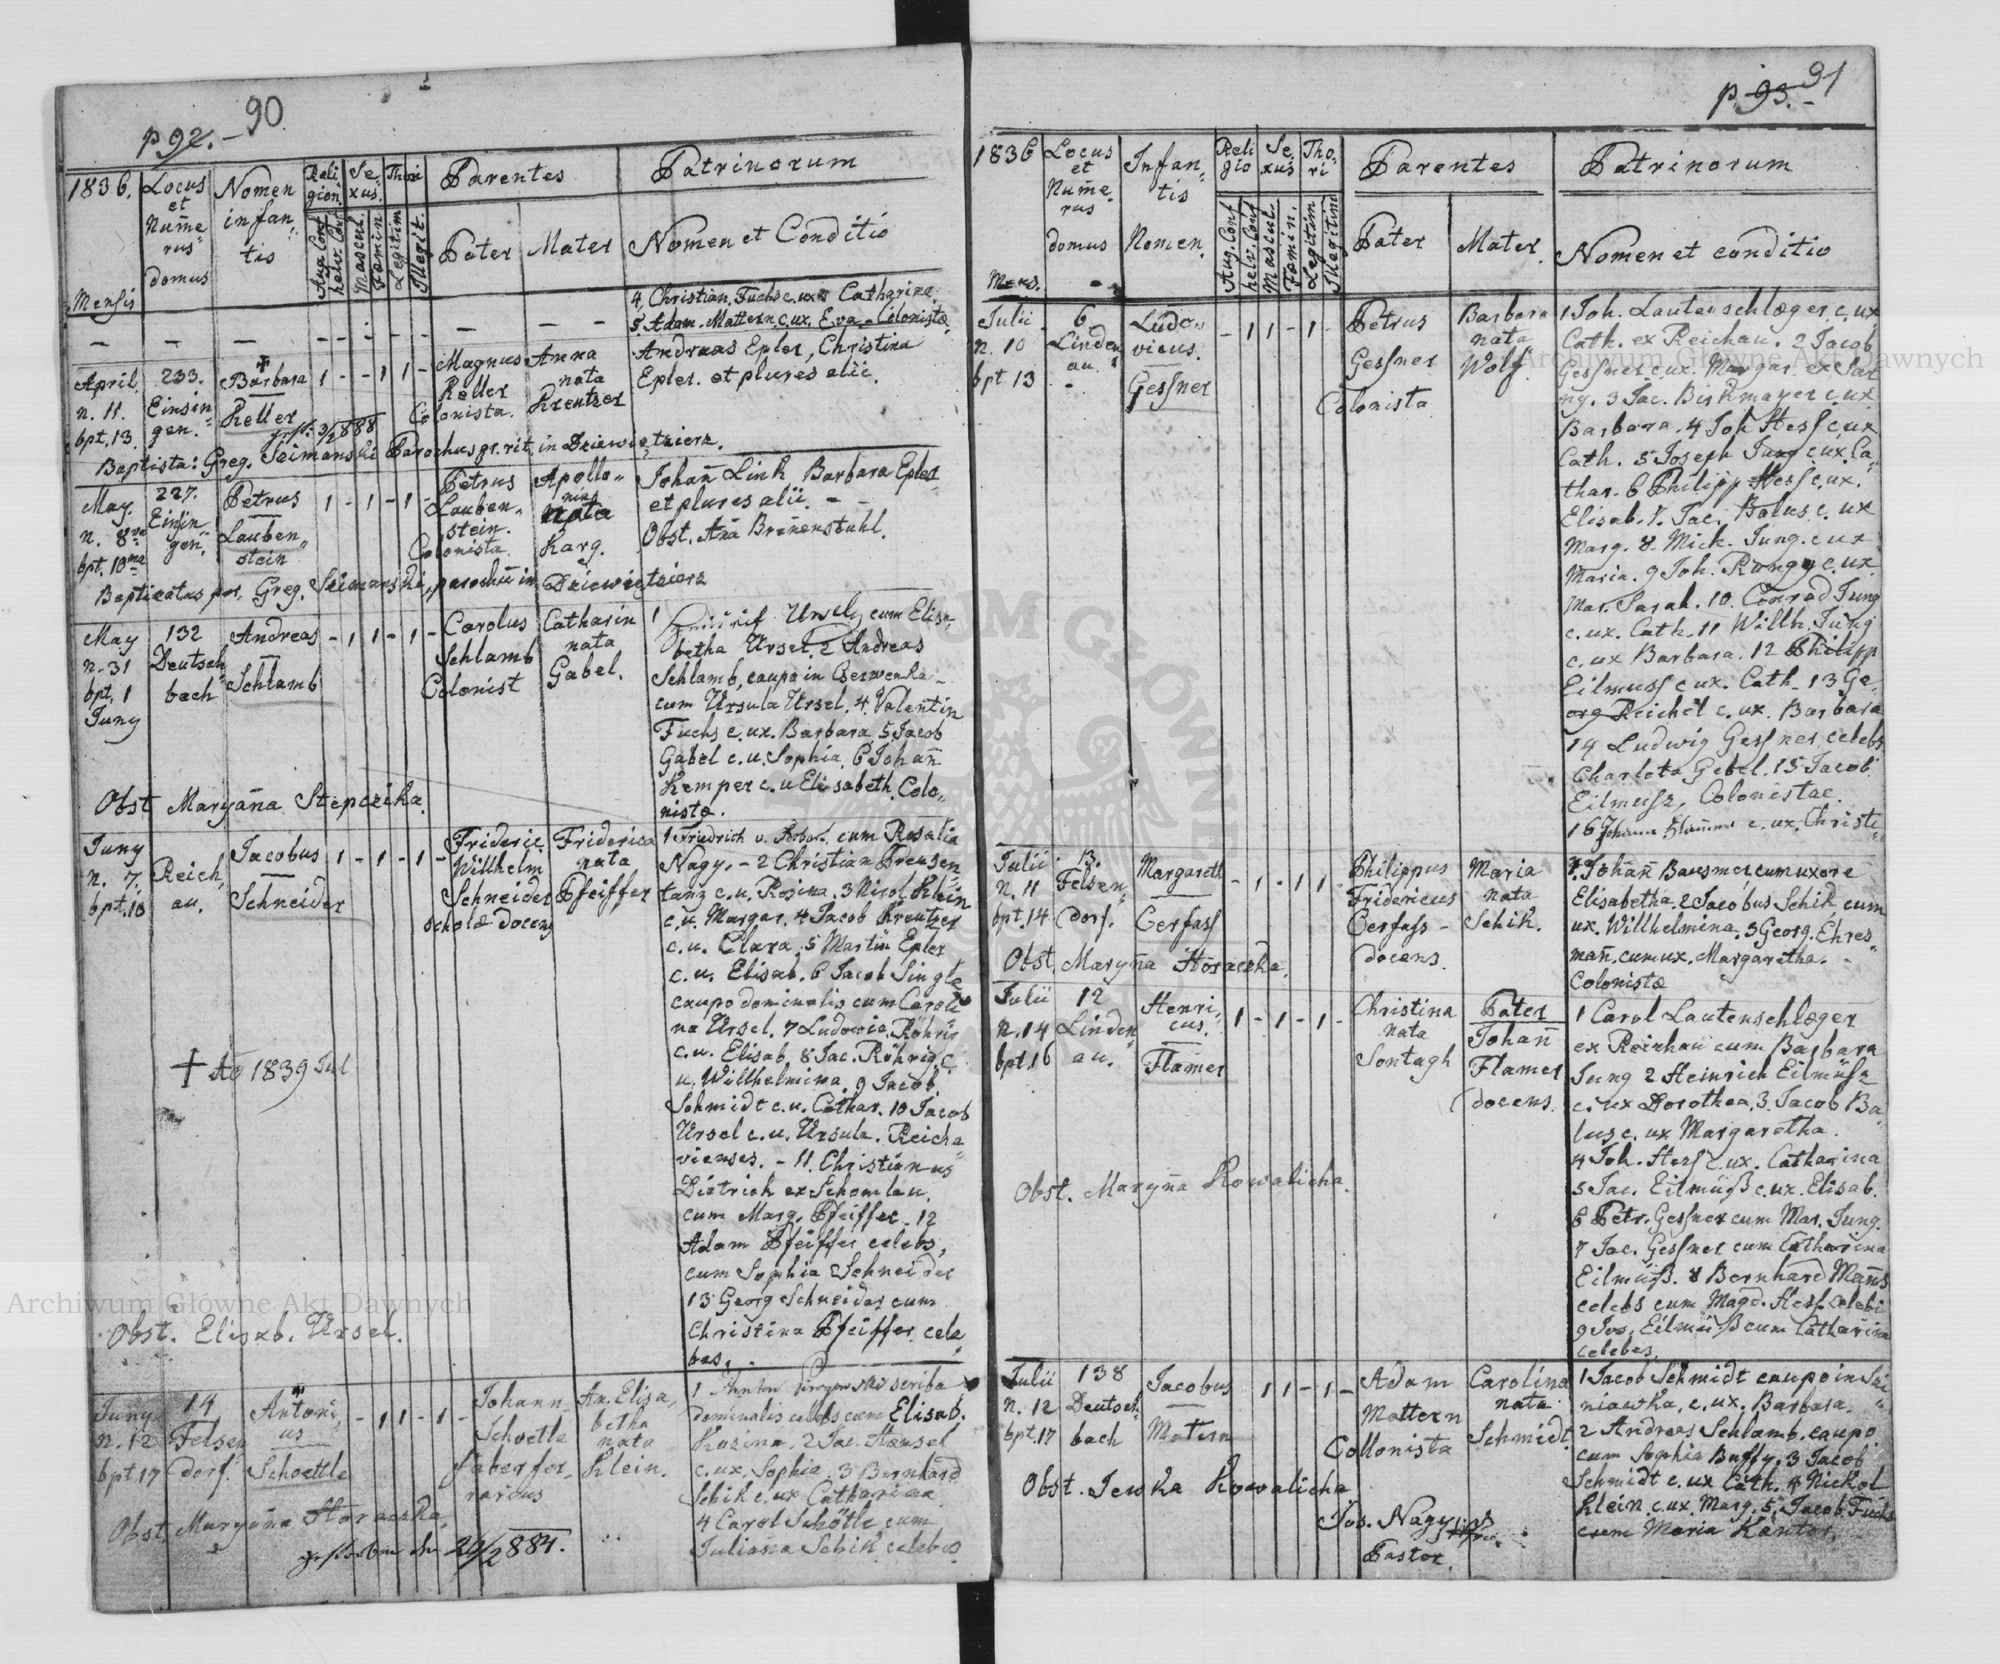 p. 92. - 90
1836. Locus et Nume rus domus Nomen infan tis Religion. Sexus. Thori Parentes Patrinorum
Mensis Aug. Conf helv. Conf Mascul. Feminin Legitim Illegit. Pater Mater Nomen et Conditio
4, Christian Fuchs c. ux. Catharina.
5 Adam Mattern c. ux. Eva - Colonistæ
April n. 11. bpt. 13.
233. Einsin gen.
Barbara Keller
1 - - 1 1 -
Magnus Keller Colonista.
Anna nata Kreutzer
Andreas Epler, Christina
Epler. et plures alii.
Baptista: Greg. Szimanski Parochus gr. rit. in Dziewietzierz.
May. n. 8va bpt. 10ma
227. Einsin gen.
Petrus Lauben stein
1 - 1 - 1 -
Petrus Lauben stein. Colonista.
Apollo nia nata Karg.
Johañ Link Barbara Epler
et plures alii. - -
Obst. Aña Breñenstuhl.
Baptizatus per Greg. Szimanski, parochū in Dziewietzierz
May n. 31 bpt. 1 Juny
132 Deutsch bach
Andreas Schlamb
- 1 1 - 1 -
Carolus Schlamb Colonist
Catharin nata Gabel.
1 Ursel, cum Elisa
betha Ursel, 2 Andreas
Schlamb, caupo in Czerwenka -
cum Ursula Ursel. 4. Valentin
Fuchs c. ux. Barbara. 5 Jacob
Gabel c. u. Sophia, 6 Johañ
Kemper c. u Elisabeth. Colo
nistæ.
Obst Maryaña Stepczika.
Juny n. 7. bpt. 10
Reich au.
Jacobus Schneider
1 - 1 - 1 -
Frideric Willhelm Schneider scholæ docens
Friderica nata Pfeiffer
1 Friedrich v. cum Rosalia
Nagy. - 2 Christian Freusen
tanz c. u. Rosina. 3 Nicol. Klein
c. u. Margar. 4 Jacob Kreutzer
c. u. Clara, 5 Martin Epler
c. u. Elisab. 6 Jacob Single
caupo dominalis cum Caroli
na Ursel. 7 Ludovic. Röhrig
c. u. Elisab. 8 Jac. Röhrig c.
u. Willhelmina. 9 Jacob
Schmidt c. u. Cathar. 10 Jacob
Ursel c. u. Ursula. Reicha
vienses. - 11. Christianus
Dietrich ex Schomlau.
cum Marg. Pfeiffer - 12
Adam Pfeiffer celebs,
cum Sophia Schneider
13 Georg Schneider cum
Christina Pfeiffer cele
bes.
† Aō 1839 Jul
Obst. Elisab. Ursel.
Juny n. 12 bpt. 17
14 Felsen dorf.
Antoni us Schoettle
- 1 1 - 1 -
Johann Schoettle faber fer rarius
An. Elisa betha nata Klein.
1 Anton scriba
dominalis celebs cum Elisab.
Kuzina. 2 Jac. Haensel
c. ux. Sophia. 3 Bernhard
Schik c. ux Catharina
4 Carol Schötle cum
Juliana Schik celebes
Obst. Maryaña Horaczka.
gestorben den 29/2 884.
p. 93. - 91
1836 Locus et Nume rus domus Infan tis Nomen. Religio Sexus Thori Parentes Patrinorum
Mens. Aug. Conf helv. Conf Mascul. Feminin. Legitim Illegitim Pater Mater. Nomen et conditio
Julii n. 10 bpt 13
6 Linden au.
Ludo vicus. Gessner
- 1 1 - 1 -
Petrus Gessner Colonista
Barbara nata Wolf
1 Joh. Lautenschlæger c. ux
Cath. ex Reichau. 2 Jacob
Gessner c. ux. Margar. ex Sar
ny. 3 Jac. Birkmayer c. ux
Barbara. 4 Joh Hess c. ux
Cath. 5 Joseph Jung c. ux. Ca
thar. 6 Philipp Hess c. ux.
Elisab. 7. Jac. Bolus c. ux
Marg. 8. Mich. Jung. c ux
Maria. 9 Joh. Rongy c. ux.
Mar. Sarah. 10. Conrad Jung
c. ux. Cath. 11 Willh. Jung
c. ux Barbara. 12 Philipp
Eilmuss c ux. Cath - 13 Ge
org Reichet c. ux. Barbara
14 Ludwig Gessner celebs
Charlota Gebel. 15 Jacob
Eilmusz, Colonistae.
16 Johann c. ux. Christi
na
Julii n. 11 bpt. 14
13. Felsen dorf.
Margareth Gerfass
- 1 - 1 1
Philippus Fridericus Gerfass - docens
Maria nata Schik.
1. Johañ Bausmer cum uxore
Elisabetha. 2 Jacobus Schik cum
ux. Willhelmina. 3 Georg. Ehres
mañ. cum ux. Margaretha. -
Colonistæ
Obst. Maryña Horaczka.
Julii n. 14 bpt. 16
12 Linden au.
Henri cus. Flamer
1 - 1 - 1 -
Christina nata Sontagh
Pater Johañ Flamer docens.
1 Carol Lautenschlæger
ex Reichau cum Barbara
Jung 2 Heinrich Eilmüsz
c. ux Dorothea. 3. Jacob Ba
lus c. ux Margaretha.
4 Joh. Hess c. ux. Catharina
5 Jac. Eilmüß c. ux. Elisab.
6 Petr. Gessner cum Mar. Jung.
7 Jac. Gessner cum Catharina
Eilmüß. 8 Bernhard Mañs
celebs cum Magd. Hess. celebi
9 Jos. Eilmüß cum Catharina
celebes.
Obst. Maryña Kowalicha.
Julii n. 12 bpt. 17
138 Deutsch bach
Jacobus Matern
1 1 - 1 -
Adam Mattern Collonista
Carolina nata Schmidt
1 Jacob Schmidt caupo in Szi
niawka, c. ux. Barbara.
2 Andreas Schlamb. caupo
cum Sophia Buffy. 3 Jacob
Schmidt c. ux Cath. 4 Nickol
Klein c. ux. Marg. 5. Jacob Fuchs
cum Maria Kantor.
Obst. Jewka Kowalicha
Jos. Nagy
Pastor.
Archiwum Główne Akt Dawnych
Archiwum Główne Akt Dawnych